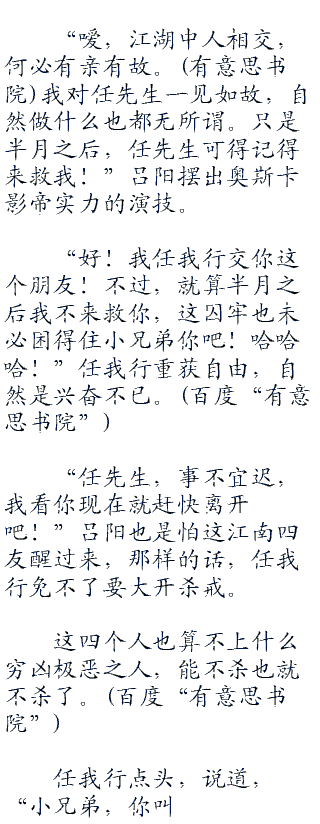 “嗳，江湖中人相交，
何必有亲有故。(有意思书
院)我对任先生一见如故，自
然做什么也都无所谓。只是
半月之后，任先生可得记得
来救我！”吕阳摆出奥斯卡
影帝实力的演技。
“好！我任我行交你这
个朋友！不过，就算半月之
后我不来救你，这囚牢也未
必困得住小兄弟你吧！哈哈
哈！”任我行重获自由，自
然是兴奋不已。(百度“有意
思书院”)
“任先生，事不宜迟，
我看你现在就赶快离开
吧！”吕阳也是怕这江南四
友醒过来，那样的话，任我
行免不了要大开杀戒。
这四个人也算不上什么
穷凶极恶之人，能不杀也就
不杀了。(百度“有意思书
院”)
任我行点头，说道，
“小兄弟，你叫